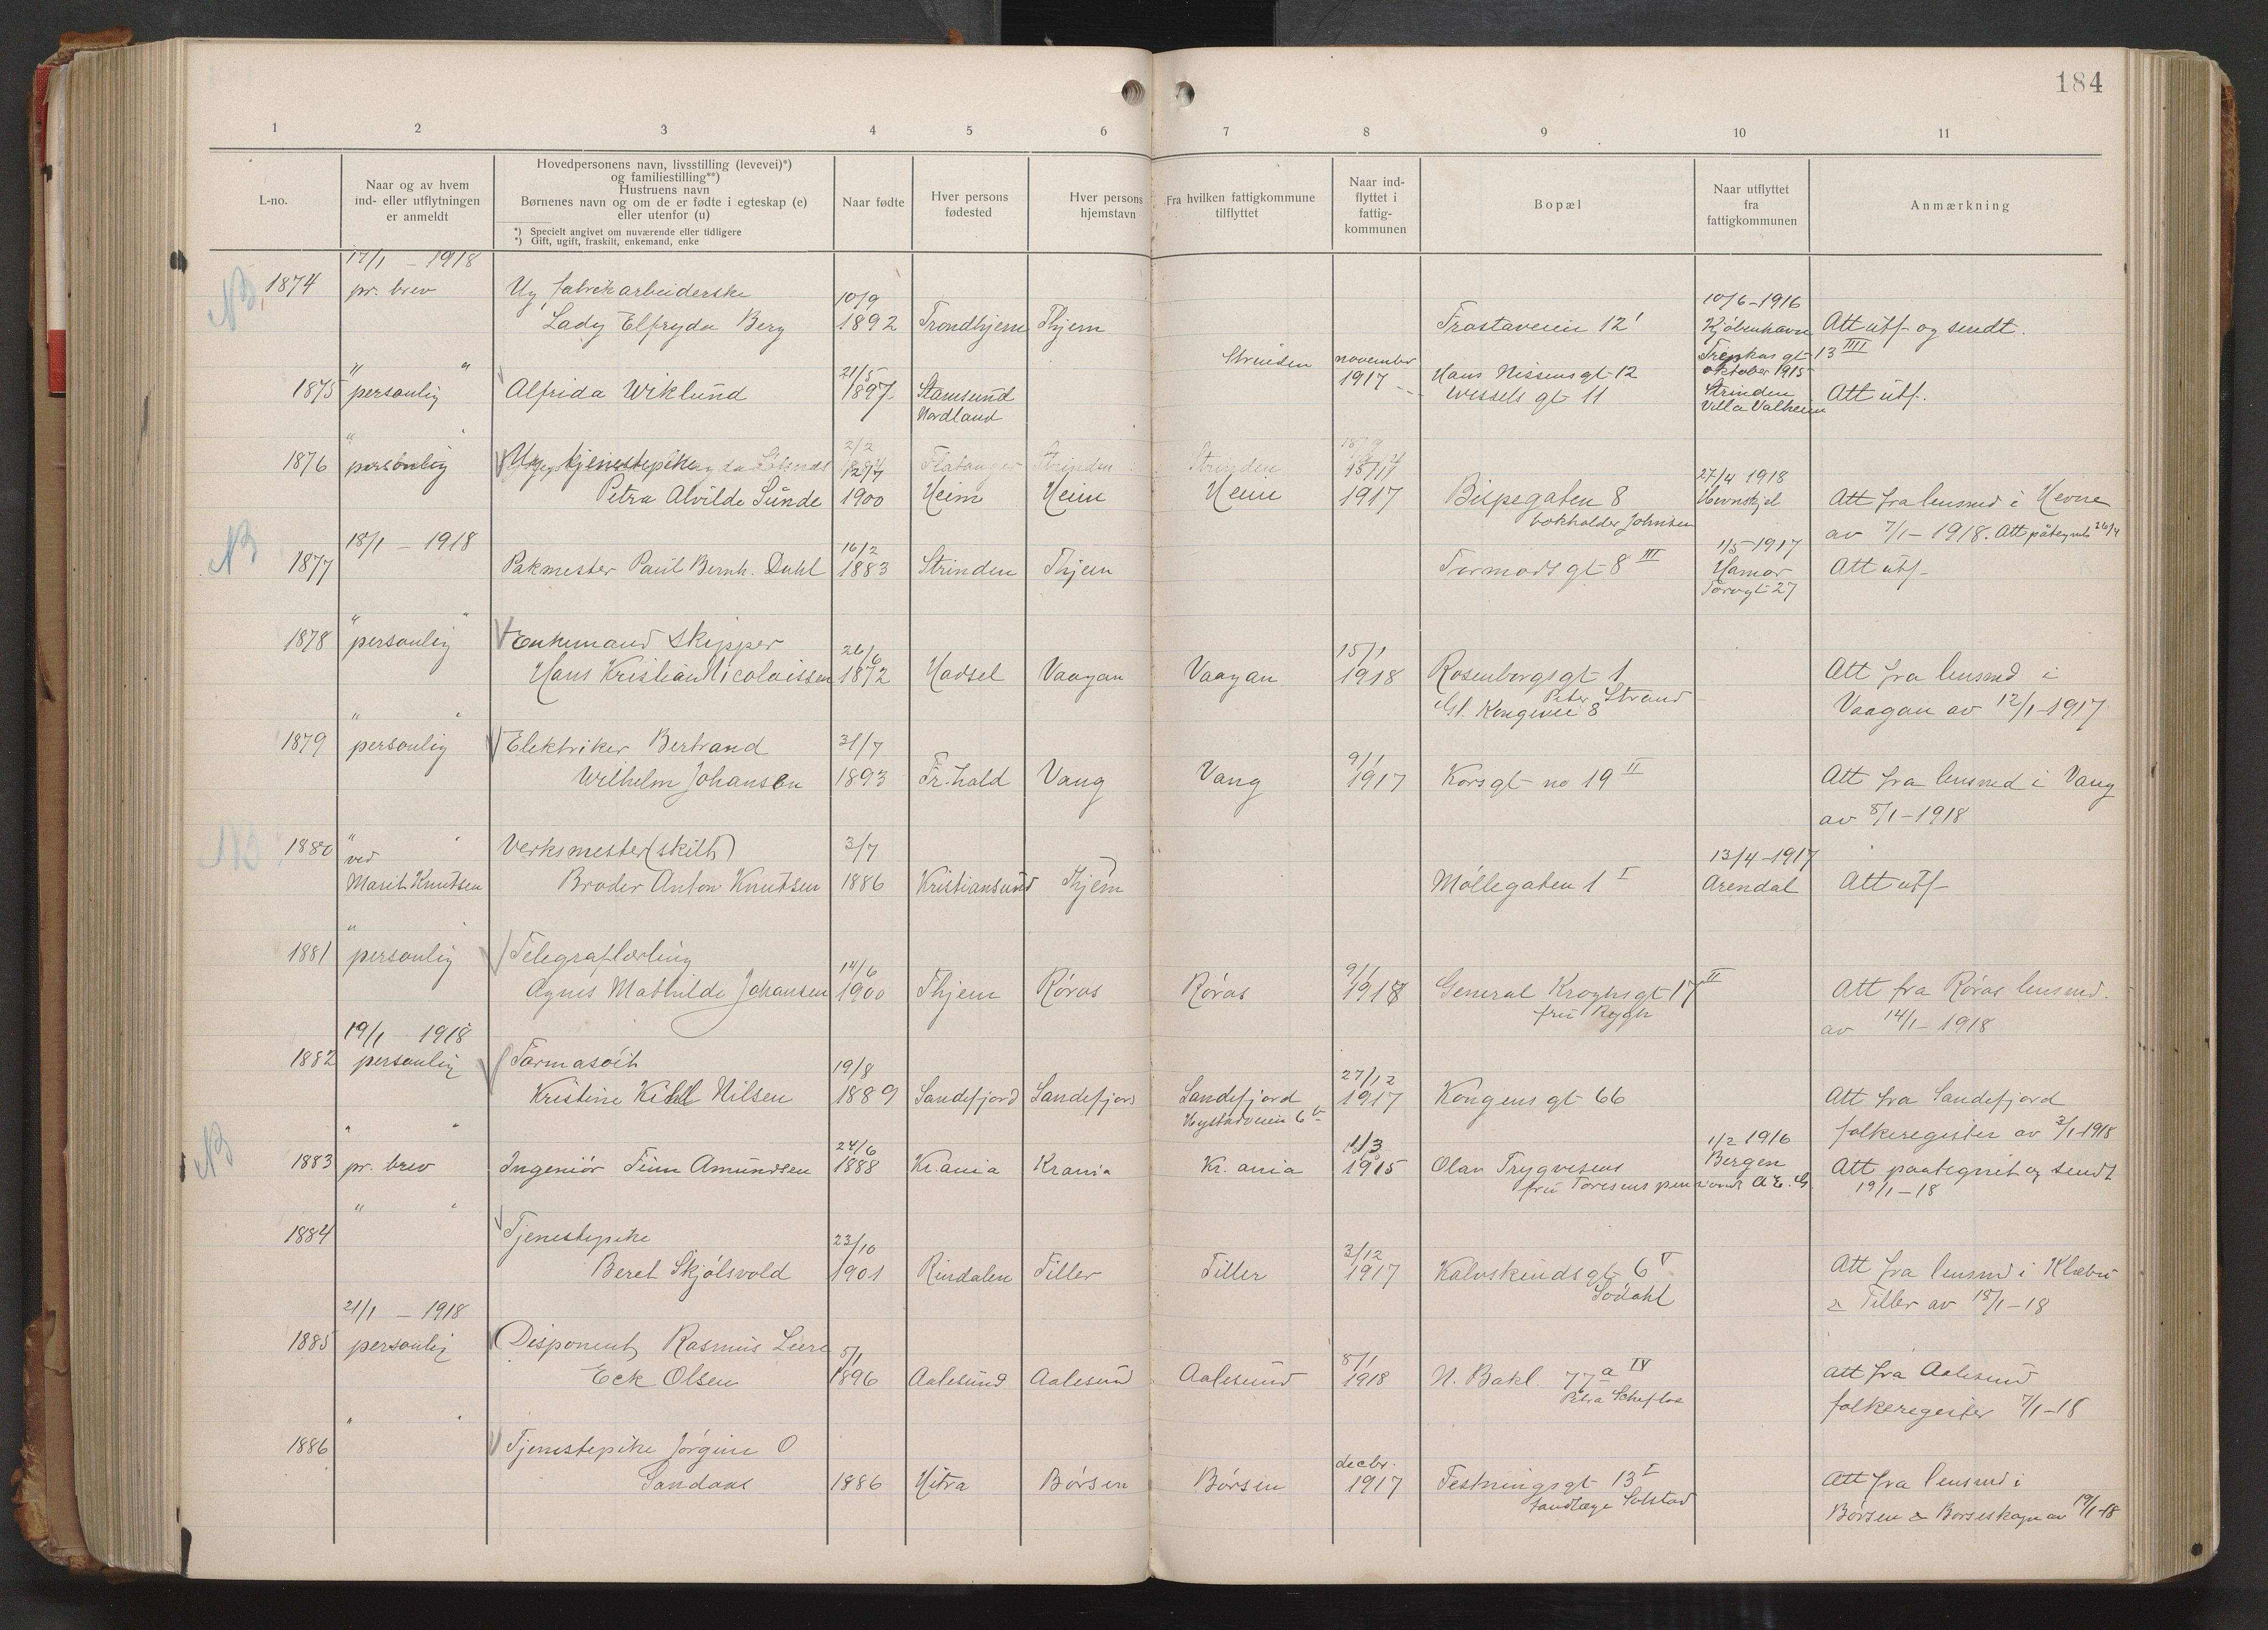 184
1 2 3 4 5 6 7 8 9 10 11
L-no.
Naar og av hvem
ind- eller utflytningen
er anmeldt
Hovedpersonens navn, livsstilling (levevei)*)
og familiestilling**)
Hustruens navn
Børnenes navn og om de er fødte i egteskap (e)
eller utenfor (u)
*) Specielt angivet om nuværende eller tidligere
*) Gift, ugift, fraskilt, enkemand, enke
Naar fødte
Hver persons
fødested
Hver persons
hjemstavn
Fra hvilken fattigkommune
tilflyttet
Naar ind-
flyttet i
fattig-
kommunen
Bopæl
Naar utflyttet
fra
fattigkommunen
Anmærkning
17/1 - 1918
NB. 1874 pr. brev Ug fabrikarbeiderske 10/9 10/6-1916
Lady Elfryda Berg 1892 Trondhjem Thjem Frostaveien 12' Kjøbenhavn Att utf og sendt.
gt 13 IIII
" " 21/5 Strinden november Hans Nissensgt 12 oktober 1915
1875 personlig Alfrida Wiklund 1897 Stamsund 1917 Wessels gt 11 Strinden Att utf.
Nordland Villa Valheim
" "
1876 personlig Ug tjenestepike 12/7 Flatanger Strinden Strinden 15/11 27/4 1918
Petra Alvilde Sunde 1900 Heim Heim Heim 1917 Bispegaten 8 Hevnskjel Att fra lensmd i Hevne
bokholder Johnsen av 7/1-1918. Att påtegnet 26/4
18/1 - 1918
NB 1877 Pakmester Paul Bernh. Dahl 16/2 1883 Strinden Thjem Tormods gt 8 III 1/5-1917 Hamar Att utf
Torvgt 27
" "
1878 personlig Enkemand skipper 26/6 15/1
Hans Kristian Nicolaissen 1872 Hadsel Vaagan Vaagan 1918 Rosenborgsgt 1 Att fra lensmd i
Peter Strand
Gl. Kongevei 8 Vaagan av 12/1-1917
" "
1879 personlig Elektriker Bertrand 31/7 9/1
Wilhelm Johansen 1893 Fr.hald Vang Vang 1917 Korsgt no 19 II Att fra lensmd i Vang
av 8/1-1918
" "
NB 1880 ved Verksmester (skilt) 3/7 13/4-1917
Marit Knutsen Broder Anton Knutsen 1886 Kristiansund Thjem Møllegaten 1 I Arendal Att utf
"
1881 personlig Telegraflærling 14/6 9/1
Agnes Mathilde Johansen 1900 Thjem Røros Røros 1918 General Kroghsgt 17 II Att fra Røros lensmd.
fru Rygh av 14/1-1918
19/1 - 1918
1882 personlig Farmasøit 19/8 27/12
Kristine Nilsen 1889 Sandefjord Sandefjord Sandefjord 1917 Kongens gt 66 Att fra Sandefjord
folkeregister av 3/1-1918
" "
NB 1883 pr. brev Ingeniør Finn Amundsen 24/6 1888 Kr.ania Krania Kr.ania 1/3 1915 Olav Trygvesens 1/2 1916 Bergen Att paategnet og sendt
fru Toresens pensionat A.E.G. 19/1-18
" "
1884 Tjenestepike 23/10 3/12
Beret Skjølsvold 1901 Rindalen Tiller Tiller 1917 Kalvskindsgt 6 V Att fra lensmd i Klæbu
Sødahl & Tiller av 18/1-18
21/1 - 1918
1885 personlig Disponent Rasmus 5/1 8/1
Eck Olsen 1896 Aalesund Aalesund Aalesund 1918 N. Bakl. 77 a IV att fra Aalesund
Petra Schefloe folkeregister 7/1-18
" "
1886 Tjenestepike Jørgine O decbr.
Sandaas 1886 Hitra Børsen Børsen 1917 Festningsgt 13 I Att fra lensmd i
tandlæge Solstad Børsen & Børseskogn av 19/1-18